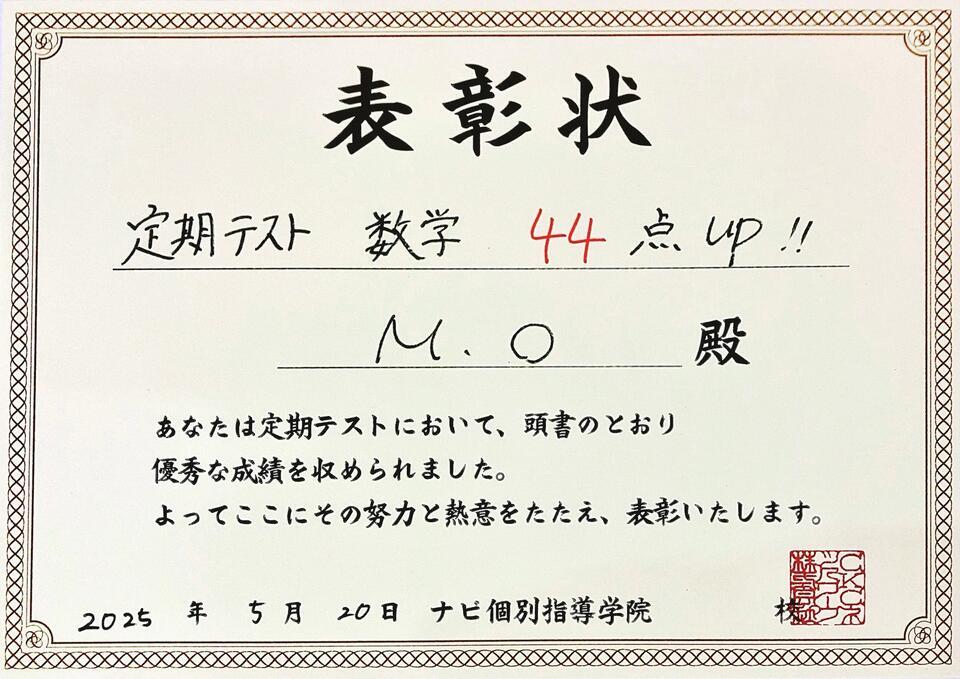 表彰状
定期テスト 数学 44点 UP!!
M.O 殿
あなたは定期テストにおいて、頭書のとおり
優秀な成績を収められました。
よってここにその努力と熱意をたたえ、表彰いたします。
2025 年 5月 20日 ナビ個別指導学院